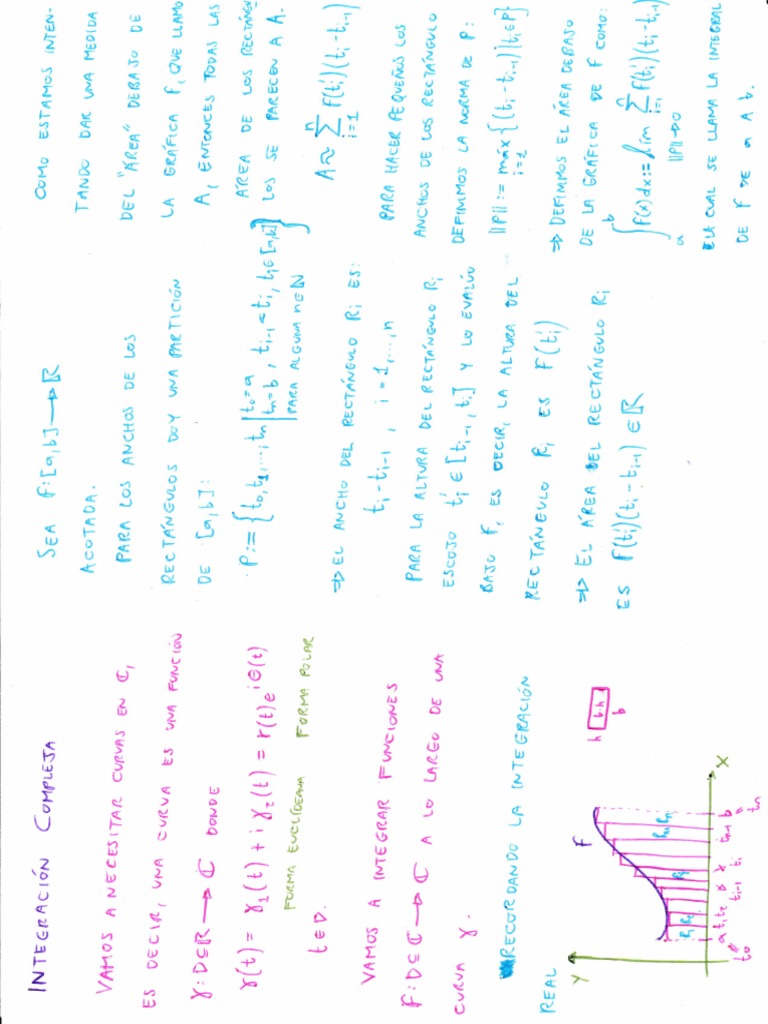 INTEGRACIÓN COMPLEJA
VAMOS A NECESITAR CURVAS EN ℂ,
ES DECIR, UNA CURVA ES UNA FUNCIÓN
γ: D⊆ℝ → ℂ DONDE
γ(t) = γ₁(t) + i γ₂(t) = r(t)e^{iθ(t)}
FORMA EUCLIDEANA FORMA POLAR
t∈D.
VAMOS A INTEGRAR FUNCIONES
F: D⊆ℂ → ℂ A LO LARGO DE UNA
CURVA γ.
RECORDANDO LA INTEGRACIÓN
REAL
Y
f
h b·h
b
R₁ R₂ Ri Rn-1 Rn
a t₁ t₂ ti-1 ti tn-1 b X
t₀ tn
SEA f: [a,b] → ℝ
ACOTADA.
PARA LOS ANCHOS DE LOS
RECTÁNGULOS DOY UNA PARTICIÓN
DE [a,b]:
P := {t₀, t₁, ..., tn | t₀=a, tn=b, ti-1 < ti, ti∈[a,b] PARA ALGUNA n∈ℕ}
⇒ EL ANCHO DEL RECTÁNGULO Ri ES:
ti - ti-1, i = 1, ..., n
PARA LA ALTURA DEL RECTÁNGULO Ri
ESCOJO ti' ∈ [ti-1, ti] Y LO EVALÚO
BAJO F, ES DECIR, LA ALTURA DEL
RECTÁNGULO Ri ES F(ti')
⇒ EL ÁREA DEL RECTÁNGULO Ri
ES F(ti')(ti - ti-1) ∈ ℝ
COMO ESTAMOS INTEN-
TANDO DAR UNA MEDIDA
DEL "ÁREA" DEBAJO DE
LA GRÁFICA F, QUE LLAMO
A, ENTONCES TODAS LAS
ÁREA DE LOS RECTÁNGU
LOS SE PARECEN A A.
A ≈ ∑_{i=1}^{n} F(ti')(ti - ti-1)
PARA HACER PEQUEÑOS LOS
ANCHOS DE LOS RECTÁNGULO
DEFINIMOS LA NORMA DE P:
||P|| := máx_{i=1} {(ti - ti-1) | ti∈P}
⇒ DEFINIMOS EL ÁREA DEBAJO
DE LA GRÁFICA DE F COMO:
∫_a^b F(x)dx := lim_{||P||→0} ∑_{i=1}^{n} F(ti')(ti - ti-1)
CUAL SE LLAMA LA INTEGRAL
DE F DE a A b.